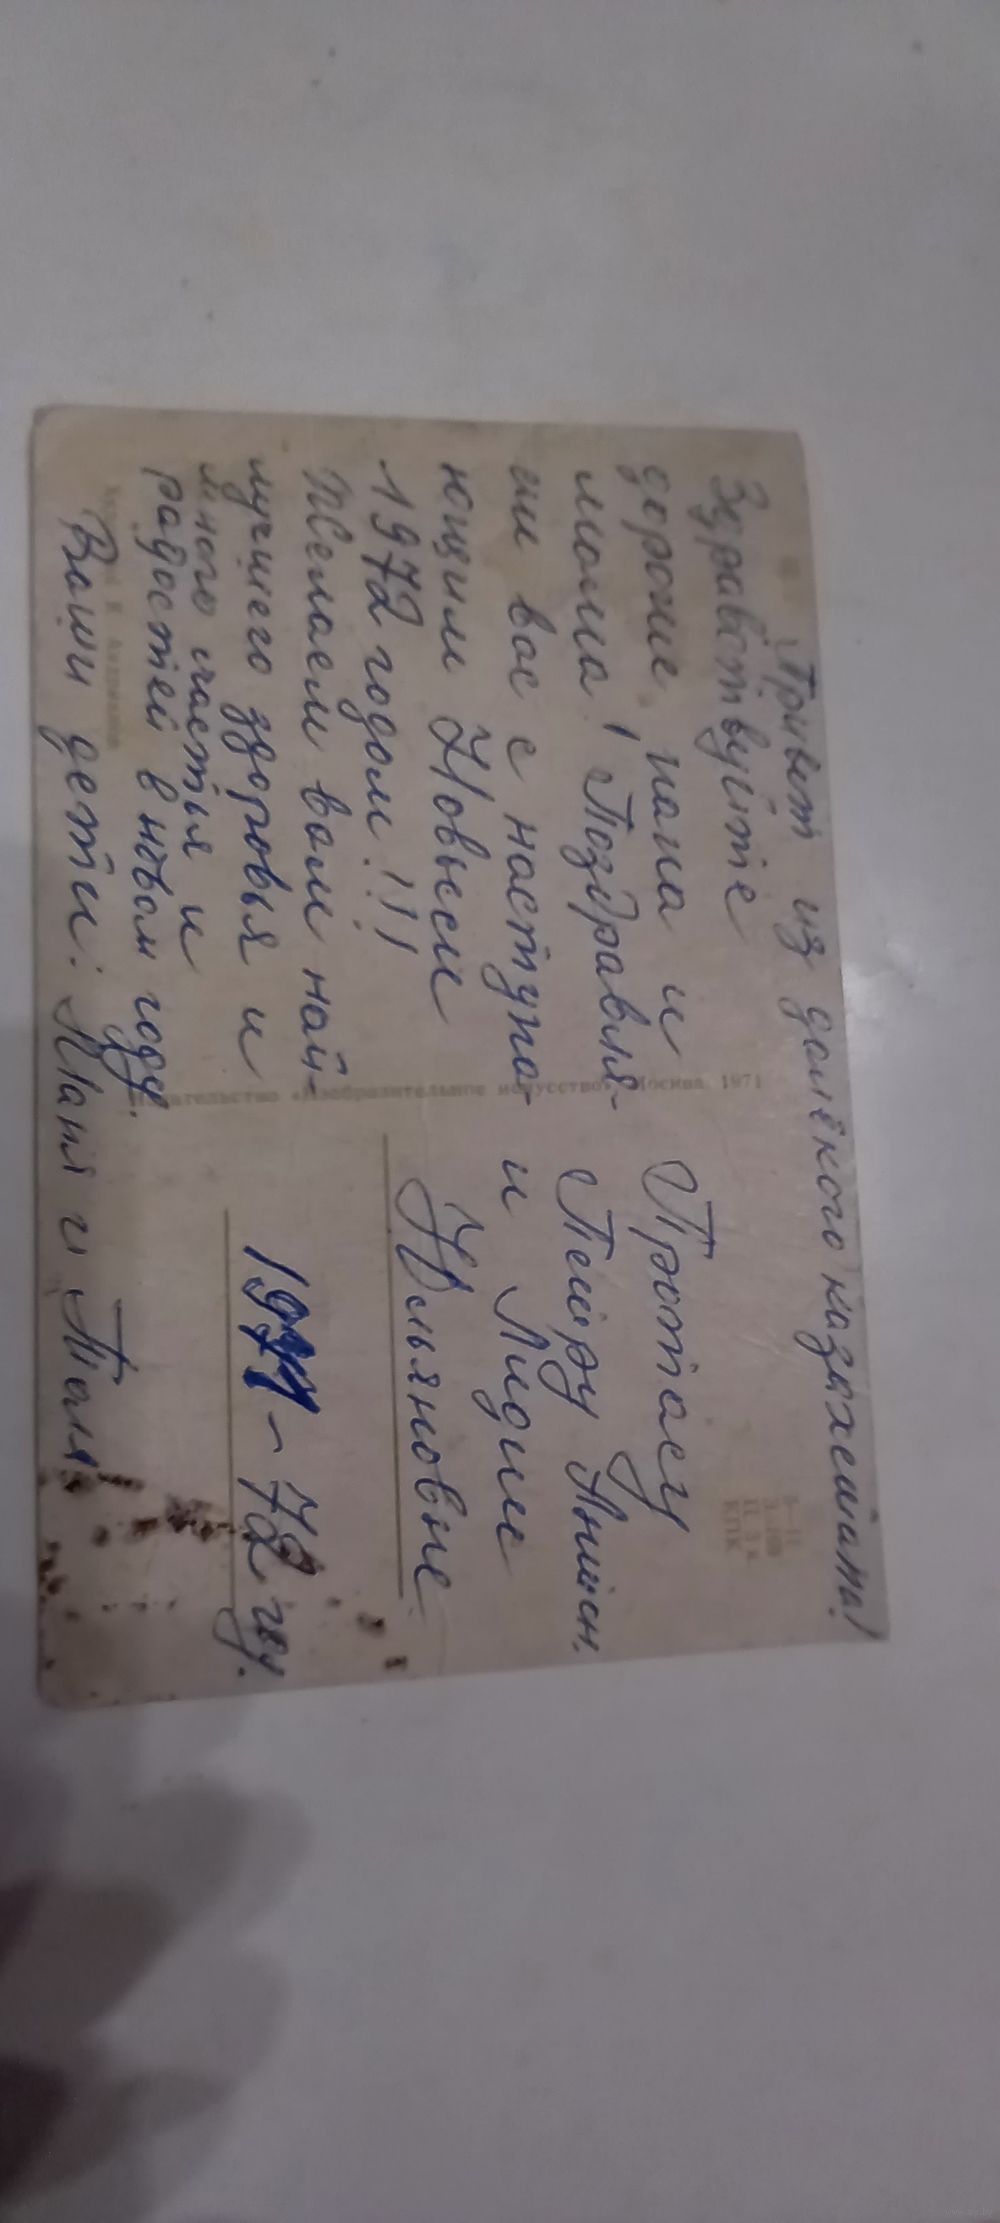 Привет из далёкого казахстана!
Здравствуйте
дорогие папа и
мама! Поздравля-
ем вас с наступа-
ющим Новым
1972 годом!!!
Желаем вам най-
лучшего здоровья и
много счастья и
радостей в новом году.
Ваши дети: и Толя
Петру
и Лидие
Ульяновне
1971-72 год.
Издательство «Изобразительное искусство». Москва. 1971
Художник К.